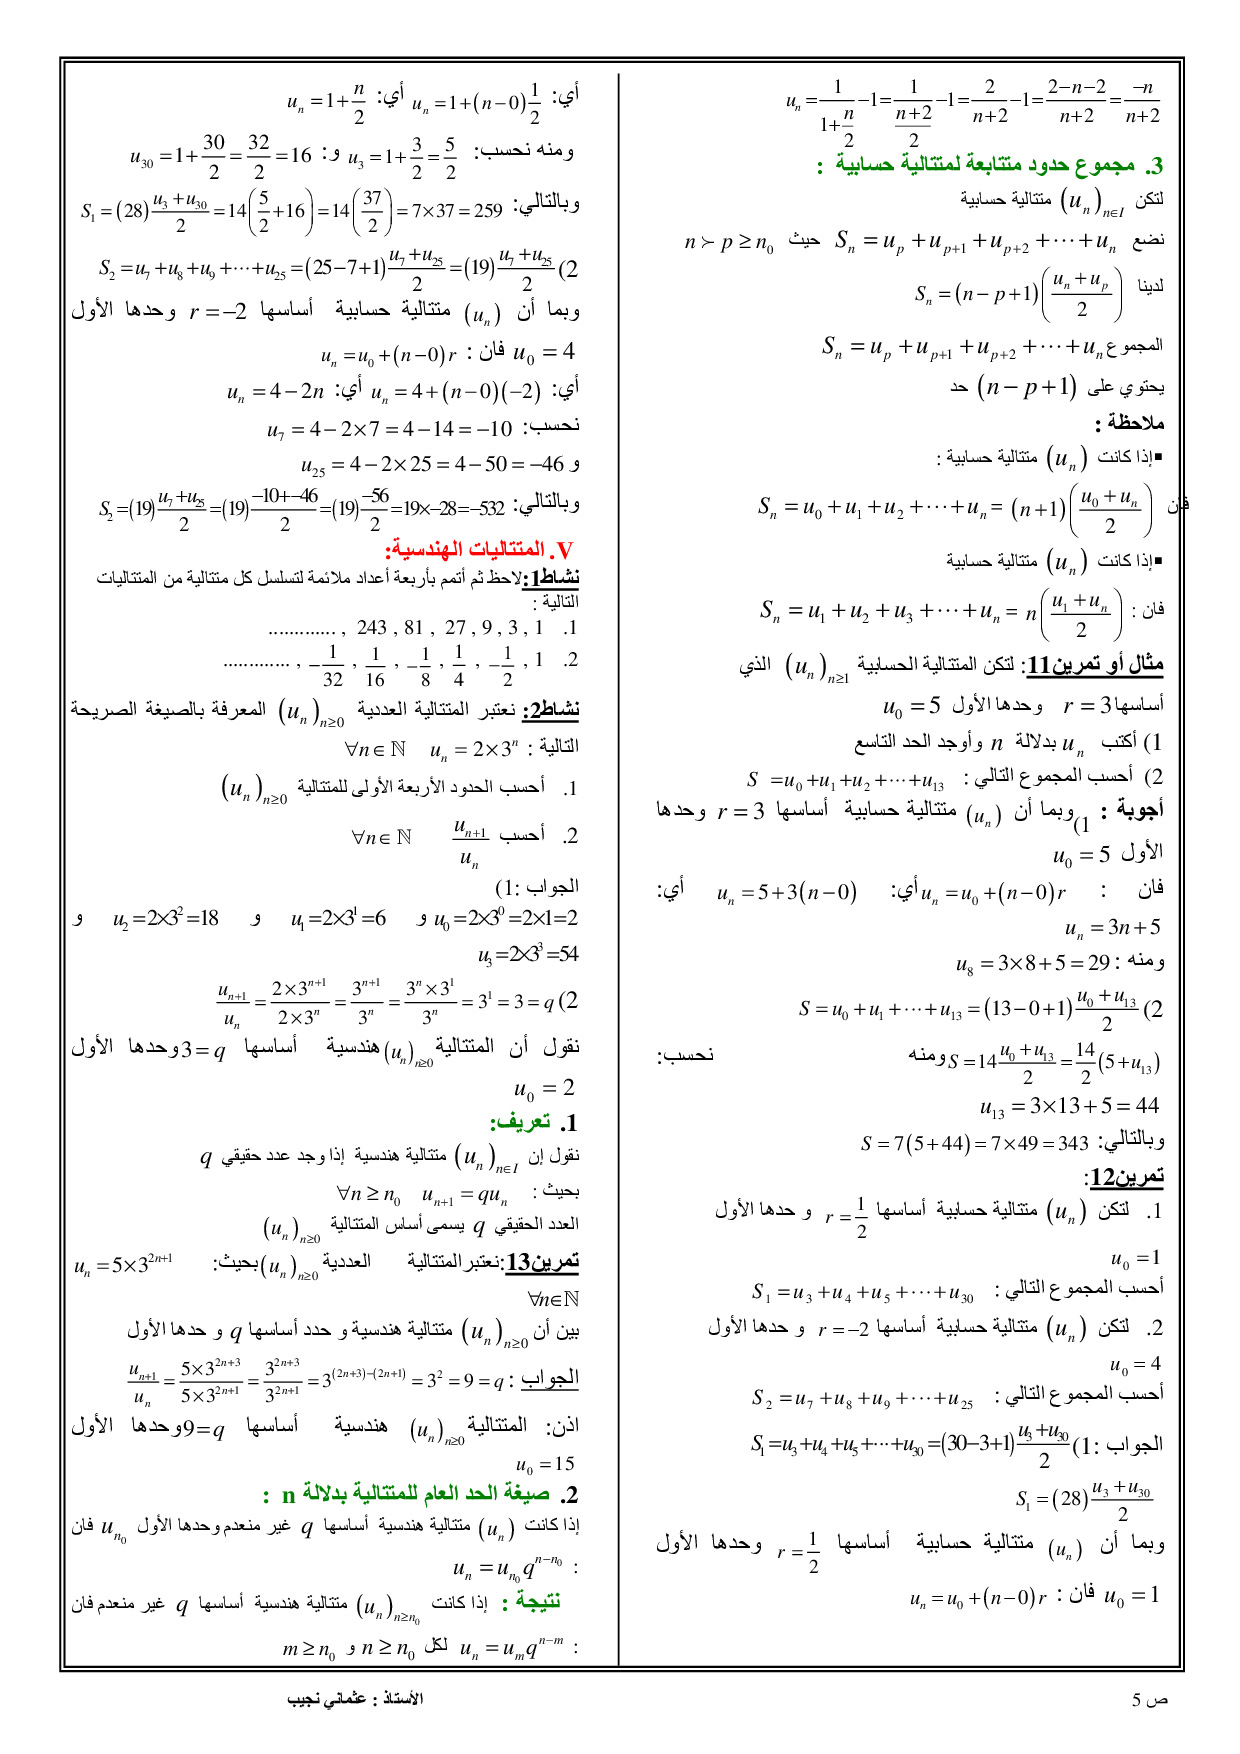 u_n = \frac{1}{1+\frac{n}{2}} -1 = \frac{1}{\frac{n+2}{2}} -1 = \frac{2}{n+2} -1 = \frac{2-n-2}{n+2} = \frac{-n}{n+2}
3. مجموع حدود متتابعة لمتتالية حسابية :
لتكن (u_n)_{n∈I} متتالية حسابية
نضع S_n = u_p + u_{p+1} + u_{p+2} + ⋯ + u_n حيث n ≻ p ≥ n_0
لدينا S_n = (n − p +1)(\frac{u_n + u_p}{2})
المجموع S_n = u_p + u_{p+1} + u_{p+2} + ⋯ + u_n
يحتوي على (n − p +1) حد
ملاحظة :
▪إذا كانت (u_n) متتالية حسابية :
فان S_n = u_0 + u_1 + u_2 + ⋯ + u_n = (n+1)(\frac{u_0 + u_n}{2})
▪إذا كانت (u_n) متتالية حسابية
فان : S_n = u_1 + u_2 + u_3 + ⋯ + u_n = n(\frac{u_1 + u_n}{2})
مثال أو تمرين11: لتكن المتتالية الحسابية (u_n)_{n≥1} الذي
أساسها r = 3 وحدها الأول u_0 = 5
1) أكتب u_n بدلالة n وأوجد الحد التاسع
2) أحسب المجموع التالي : S = u_0 + u_1 + u_2 + ⋯ + u_{13}
أجوبة : 1)وبما أن (u_n) متتالية حسابية أساسها r = 3 وحدها
الأول u_0 = 5
فان : u_n = u_0 + (n−0)r أي: u_n = 5+3(n−0) أي:
u_n = 3n + 5
ومنه : u_8 = 3×8+5 = 29
2) S = u_0 + u_1 + ⋯ + u_{13} = (13−0+1)\frac{u_0 + u_{13}}{2}
S = 14\frac{u_0 + u_{13}}{2} = \frac{14}{2}(5+u_{13}) ومنه نحسب:
u_{13} = 3×13+5 = 44
وبالتالي: S = 7(5+44) = 7×49 = 343
تمرين12:
1. لتكن (u_n) متتالية حسابية أساسها r = \frac{1}{2} و حدها الأول
u_0 = 1
أحسب المجموع التالي : S_1 = u_3 + u_4 + u_5 + ⋯ + u_{30}
2. لتكن (u_n) متتالية حسابية أساسها r = −2 و حدها الأول
u_0 = 4
أحسب المجموع التالي : S_2 = u_7 + u_8 + u_9 + ⋯ + u_{25}
الجواب :1) S_1 = u_3 + u_4 + u_5 + ⋯ + u_{30} = (30−3+1)\frac{u_3 + u_{30}}{2}
S_1 = (28)\frac{u_3 + u_{30}}{2}
وبما أن (u_n) متتالية حسابية أساسها r = \frac{1}{2} وحدها الأول
u_0 = 1 فان : u_n = u_0 + (n−0)r
أي: u_n = 1+(n−0)\frac{1}{2} أي: u_n = 1+\frac{n}{2}
ومنه نحسب: u_3 = 1+\frac{3}{2} = \frac{5}{2} و: u_{30} = 1+\frac{30}{2} = \frac{32}{2} = 16
وبالتالي: S_1 = (28)\frac{u_3 + u_{30}}{2} = 14(\frac{5}{2}+16) = 14(\frac{37}{2}) = 7×37 = 259
2) S_2 = u_7 + u_8 + u_9 + ⋯ + u_{25} = (25−7+1)\frac{u_7 + u_{25}}{2} = (19)\frac{u_7 + u_{25}}{2}
وبما أن (u_n) متتالية حسابية أساسها r = −2 وحدها الأول
u_0 = 4 فان : u_n = u_0 + (n−0)r
أي: u_n = 4+(n−0)(−2) أي: u_n = 4−2n
نحسب: u_7 = 4−2×7 = 4−14 = −10
و u_{25} = 4−2×25 = 4−50 = −46
وبالتالي: S_2 = (19)\frac{u_7 + u_{25}}{2} = (19)\frac{−10+−46}{2} = (19)\frac{−56}{2} = 19×−28 = −532
V. المتتاليات الهندسية:
نشاط1:لاحظ ثم أتمم بأربعة أعداد ملائمة لتسلسل كل متتالية من المتتاليات
التالية :
1. 1 , 3 , 9 , 27 , 81 , 243 , .............
2. 1 , −\frac{1}{2} , \frac{1}{4} , −\frac{1}{8} , \frac{1}{16} , −\frac{1}{32} , .............
نشاط2: نعتبر المتتالية العددية (u_n)_{n≥0} المعرفة بالصيغة الصريحة
التالية : u_n = 2×3^n ∀n∈ℕ
1. أحسب الحدود الأربعة الأولى للمتتالية (u_n)_{n≥0}
2. أحسب \frac{u_{n+1}}{u_n} ∀n∈ℕ
الجواب :1)
u_0 = 2×3^0 = 2×1 = 2 و u_1 = 2×3^1 = 6 و u_2 = 2×3^2 = 18 و
u_3 = 2×3^3 = 54
2) \frac{u_{n+1}}{u_n} = \frac{2×3^{n+1}}{2×3^n} = \frac{3^{n+1}}{3^n} = \frac{3^n×3^1}{3^n} = 3^1 = 3 = q
نقول أن المتتالية (u_n)_{n≥0} هندسية أساسها q = 3 وحدها الأول
u_0 = 2
1. تعريف:
نقول إن (u_n)_{n∈I} متتالية هندسية إذا وجد عدد حقيقي q
بحيث : u_{n+1} = qu_n ∀n ≥ n_0
العدد الحقيقي q يسمى أساس المتتالية (u_n)_{n≥0}
تمرين13:نعتبرالمتتالية العددية (u_n)_{n≥0} بحيث: u_n = 5×3^{2n+1}
∀n∈ℕ
بين أن (u_n)_{n≥0} متتالية هندسية و حدد أساسها q و حدها الأول
الجواب : \frac{u_{n+1}}{u_n} = \frac{5×3^{2n+3}}{5×3^{2n+1}} = \frac{3^{2n+3}}{3^{2n+1}} = 3^{(2n+3)−(2n+1)} = 3^2 = 9 = q
اذن: المتتالية (u_n)_{n≥0} هندسية أساسها q = 9 وحدها الأول
u_0 = 15
2. صيغة الحد العام للمتتالية بدلالة n :
إذا كانت (u_n) متتالية هندسية أساسها q غير منعدم وحدها الأول u_{n_0} فان
: u_n = u_{n_0} q^{n−n_0}
نتيجة : إذا كانت (u_n)_{n≥n_0} متتالية هندسية أساسها q غير منعدم فان
: u_n = u_m q^{n−m} لكل n ≥ n_0 و m ≥ n_0
ص 5
الأستاذ : عثماني نجيب